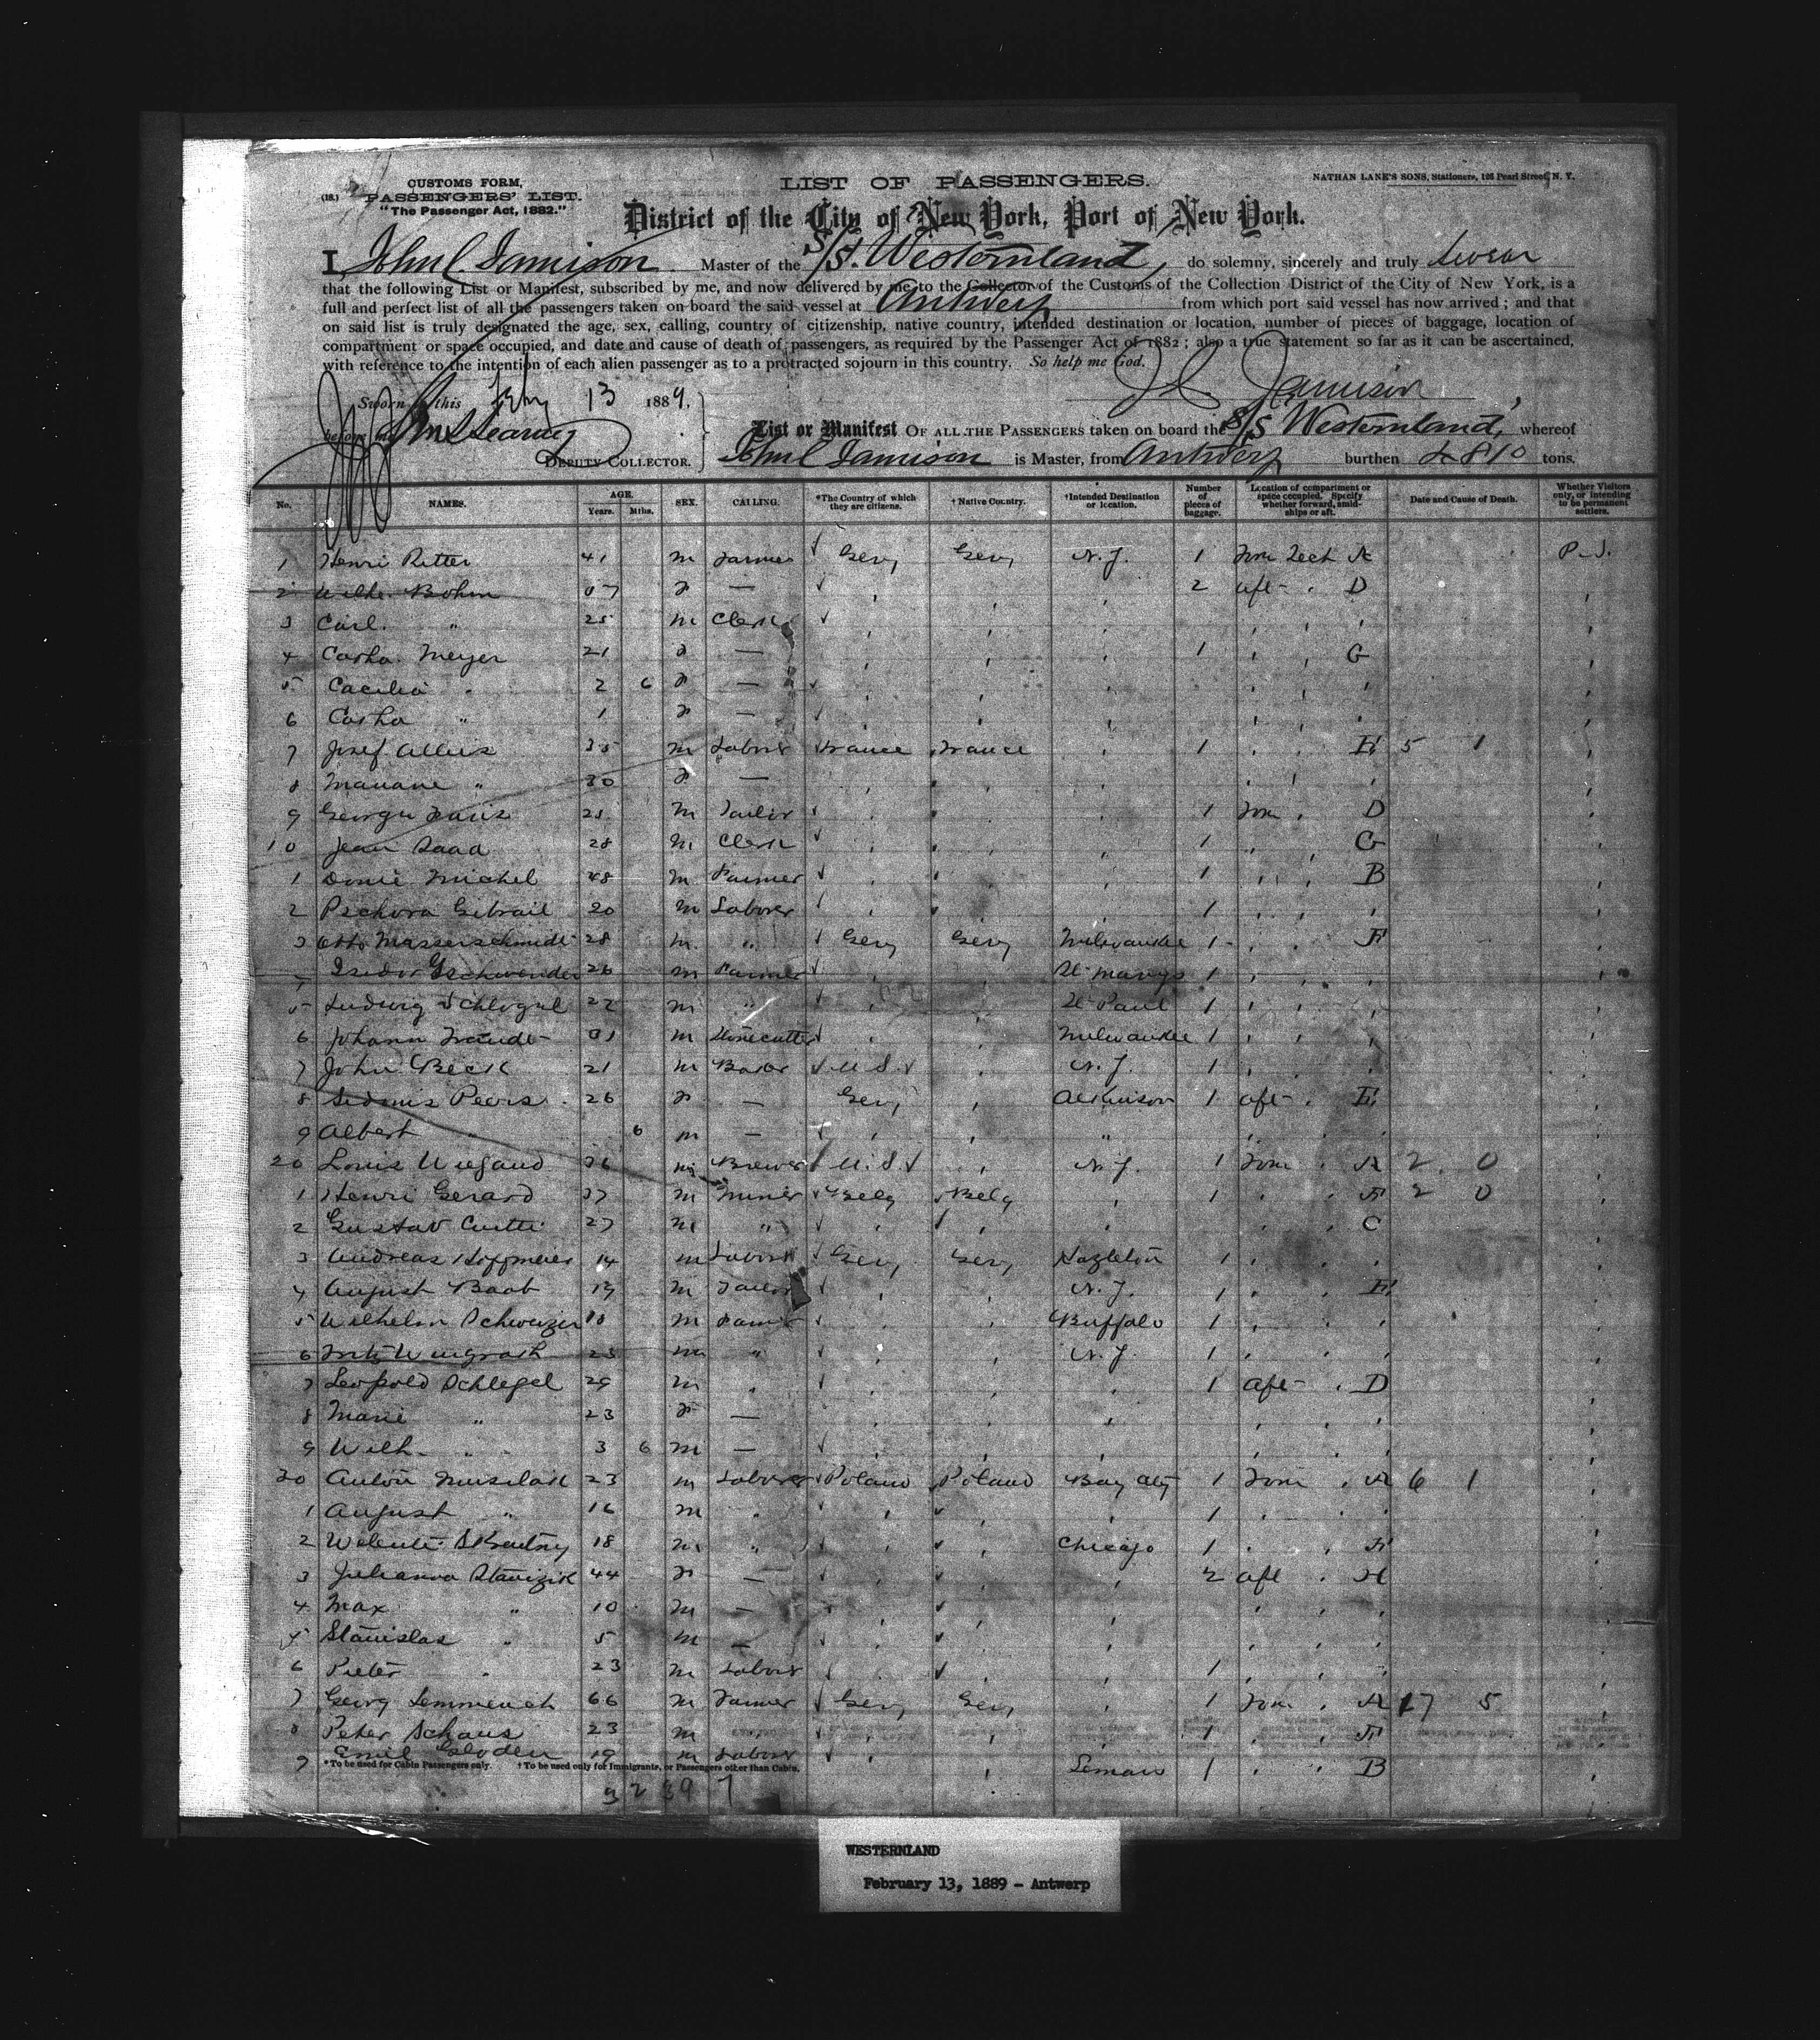 CUSTOMS FORM,
(18.) PASSENGERS' LIST.
"The Passenger Act, 1882."
LIST OF PASSENGERS.
NATHAN LANE'S SONS, Stationers, 126 Pearl Street, N. Y.
District of the City of New York, Port of New York.
I John C. Jamison Master of the S/S. Westernland, do solemny, sincerely and truly swear
that the following List or Manifest, subscribed by me, and now delivered by me to the Collector of the Customs of the Collection District of the City of New York, is a
full and perfect list of all the passengers taken on board the said vessel at Antwerp from which port said vessel has now arrived; and that
on said list is truly designated the age, sex, calling, country of citizenship, native country, intended destination or location, number of pieces of baggage, location of
compartment or space occupied, and date and cause of death of passengers, as required by the Passenger Act of 1882; also a true statement so far as it can be ascertained,
with reference to the intention of each alien passenger as to a protracted sojourn in this country. So help me God.
Sworn this Feby 13 1889,
J C Jamison
before me
DEPUTY COLLECTOR.
List or Manifest OF ALL THE PASSENGERS taken on board the S/S Westernland, whereof
John C Jamison is Master, from Antwerp burthen 4810 tons.
No. NAMES. AGE. Years. Mths. SEX. CALLING. *The Country of which they are citizens. †Native Country. †Intended Destination or location. Number of pieces of baggage. Location of compartment or space occupied. Specify whether forward, amidships or aft. Date and Cause of Death. Whether Visitors only, or intending to be permanent settlers.
1 Henri Ritter 41 m Farmer Gery Gery N.Y. 1 A P.S.
2 Wilhe. Bohm 2 aft D
3 Carl " 25 m Clerk
4 Meyer 21 f — 1 G
5 Cacilia " 2 6 f —
6 " 1 f —
7 Josef 35 m Laborer France France 1 E 5 1
8 " 30 f —
9 m Tailor 1 D
10 Jean Saad 28 m Clerk 1 G
1 Michel 48 m Farmer 1 B
2 Gibrail 20 m Laborer 1
3 Otto Messerschmidt 28 m " Gery Gery Milwaukee 1 F
Isidor Gschwender 26 m Farmer St Marys 1
5 Ludwig Schlogul 22 m " St Paul 1
6 Johann m Stonecutter Milwaukee 1
7 John Beck 21 m Baker U.S. N.Y. 1
8 Peers 26 f — Gery Atkinson 1 aft E
9 Albert " 6 m — "
20 Louis Wiegand m Brewer U.S. N.Y. 1 A 2 0
1 Henri Gerard 37 m Miner Belg Belg 1 F 2 0
2 Gustav 27 m " C
3 Andreas Hoffmeier 14 m Laborer Gery Gery Hazleton 1
4 August Baab 19 m N.Y. 1 E
5 Wilhelm Schweizer 18 m Farmer Buffalo 1
6 Weigrath 25 m " N.Y. 1
7 Leopold Schlegel 29 m 1 aft D
8 Marie " 23 f —
9 Wilh. " 3 6 m —
30 Anton Musilak 23 m Laborer Poland Poland Bay City 1 A 6 1
1 August " 16 m 1
2 18 m " Chicago 1 F
3 Julianna 44 f — 2 aft H
4 Max " 10 m —
5 Stanislas " 5 m —
6 Pieter 23 m Laborer 1
7 Georg 66 m Farmer Gery Gery 1 A 17 5
8 Peter Schaus 23 m 1 F
9 Emil Gloden 19 m Laborer 1 B
*To be used for Cabin Passengers only. †To be used only for Immigrants, or Passengers other than Cabin.
WESTERNLAND
February 13, 1889 - Antwerp